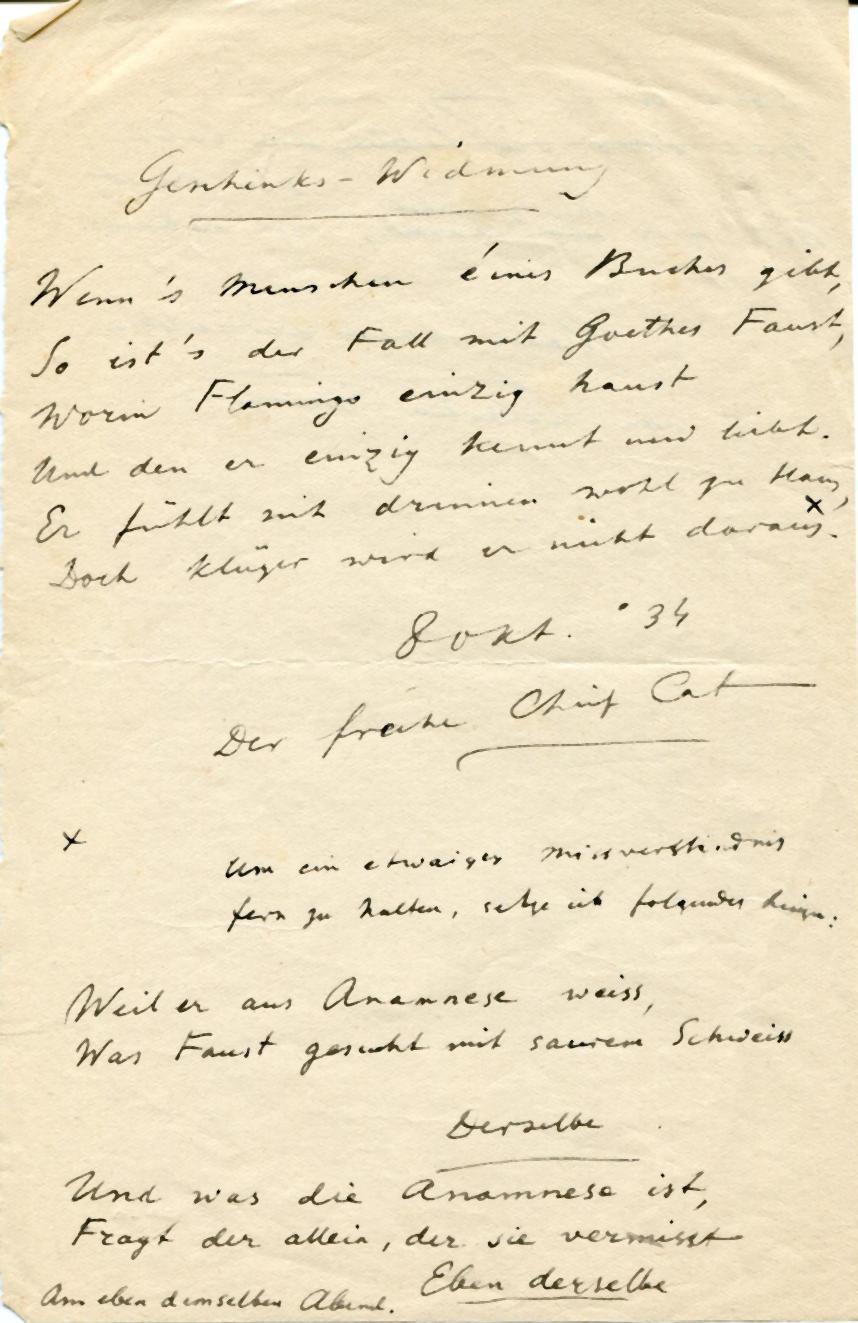 Geschenks-Widmung
Wenn's Menschen eines Buches gibt,
So ist's der Fall mit Goethes Faust,
Worin Flamingo einzig haust
Und den er einzig kennt und liebt.
Er fühlt sich drinnen wohl zu Haus,
Doch klüger wird er nicht daraus. x
8 Okt. '34
Der freche Chief Cat
x
Um ein etwaiges Missverständnis
fern zu halten, setze ich folgendes hinzu:
Weil er aus Anamnese weiss,
Was Faust gesucht mit saurem Schweiss
Derselbe
Und was die Anamnese ist,
Fragt der allein, der sie vermisst
Eben derselbe
Am eben demselben Abend.